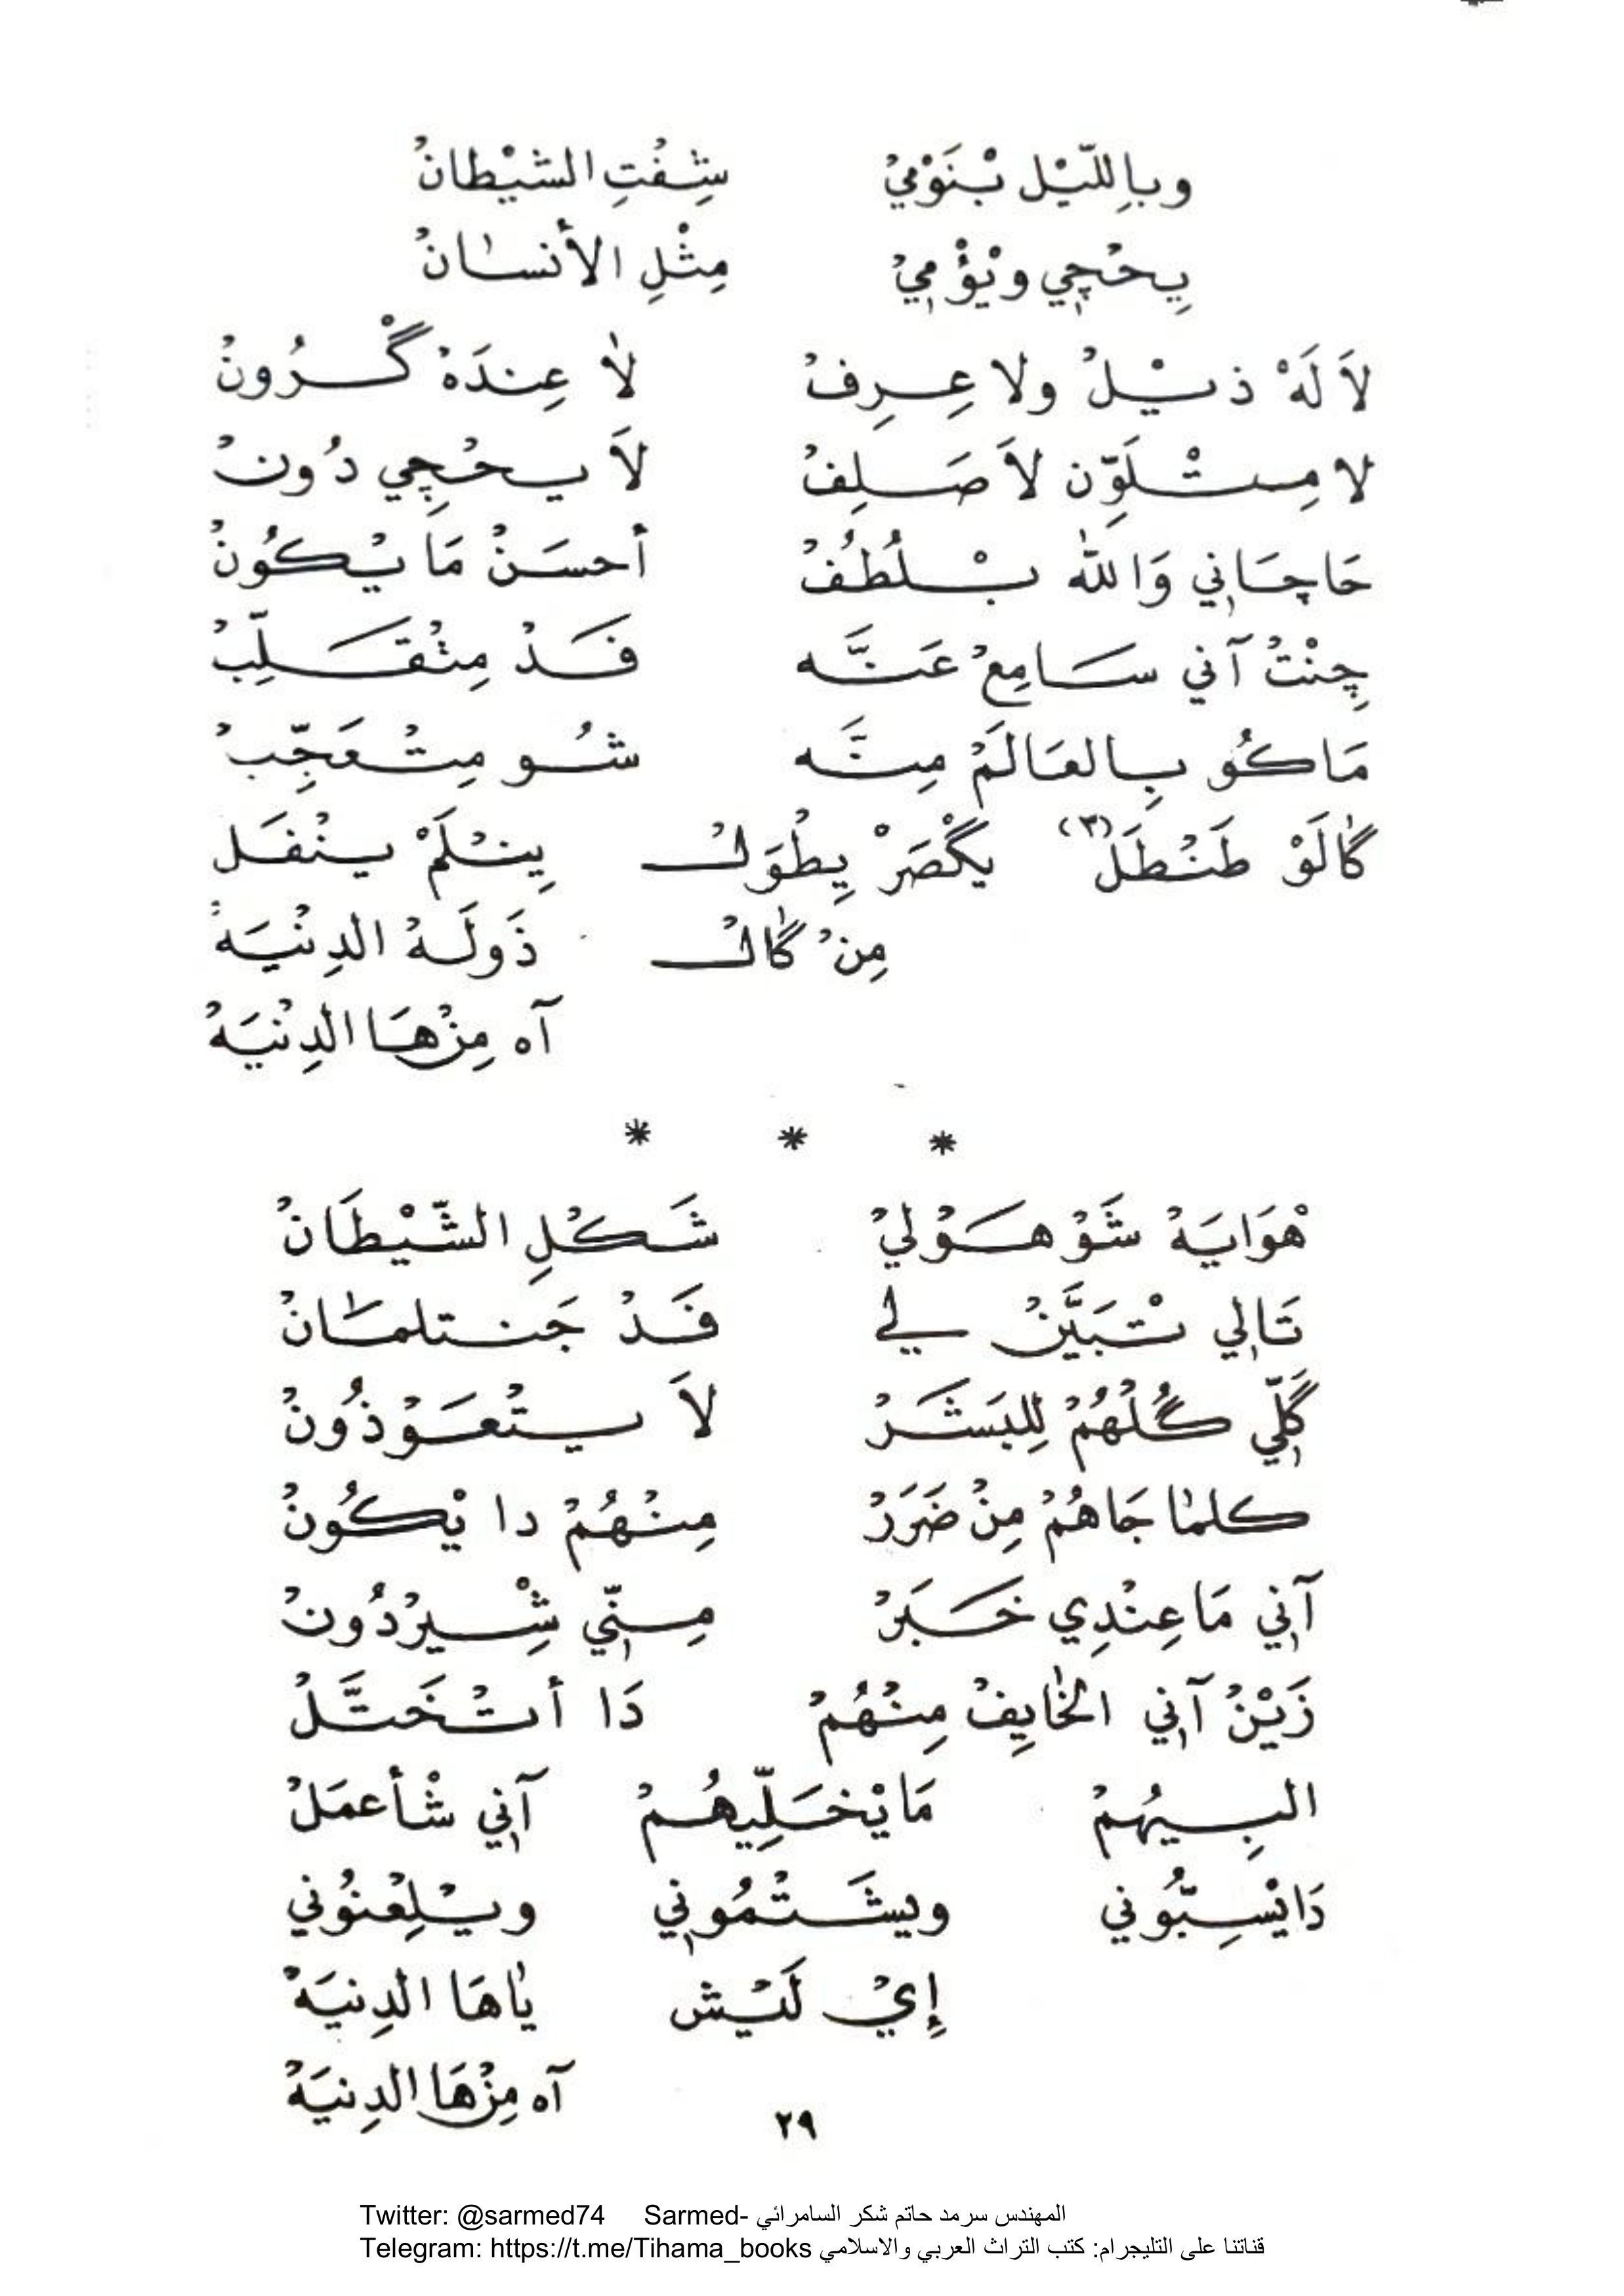 وبِاللّيْل بْنَوْمِيْ شِفْتِ الشَيْطانْ
يِحْچِي ويْؤْمِيْ مِثْلِ الأنسانْ
لاَ لَهْ ذيْلْ ولا عِرِفْ لا عِندَهْ گْرُونْ
لا مِتْلَوِّن لاَ صَلِفْ لاَ يحْچِي دُونْ
حَاچَانِي وَالله بْلُطُفْ أحسَنْ مَا يْكُونْ
چِنْتْ آني سَامِعْ عَنَّه فَدْ مِتْقَلِّبْ
مَاكُو بِالعَالَمْ مِنَّه شُو مِتْعَجِّبْ
گالَوْ طَنْطَلْ (٣) يگْصَرْ يِطْوَلْ يِنْلَمْ ينْفَل
مِنْ گالْ ذَولَهْ الدِنْيَهْ
آه مِنْهَا الدِنْيَهْ
* * *
هْوَايَهْ شَوْهَوْلِيْ شَكْلِ الشّيْطَانْ
تَالِي تْبَيَّنْ لي فَدْ جَنتلمَانْ
گَلِّي گُلْهُمْ لِلبَشَرْ لاَ يسْتعَوْذُونْ
كلما جَاهُمْ مِنْ ضَرَرْ مِنْهُمْ دا يْكُونْ
آنِي مَا عِنْدِي خَبَرْ مِنِّي شِيرْدُونْ
زَيْنْ آنِي الخايِفْ مِنْهُمْ دَا أتْخَتَّلْ
البِيهُمْ مَا يْخَلِّيهُمْ آنِي شْأعمَلْ
دَايْسِبُّونِي ويشَتْمُونِي ويْلِعْنُونِي
إيْ لَيْش ياهَا الدِنيَهْ
آه مِنْهَا الدِنيَهْ
٢٩
Twitter: @sarmed74 Sarmed- المهندس سرمد حاتم شكر السامرائي
Telegram: https://t.me/Tihama_books قناتنا على التليجرام: كتب التراث العربي والاسلامي